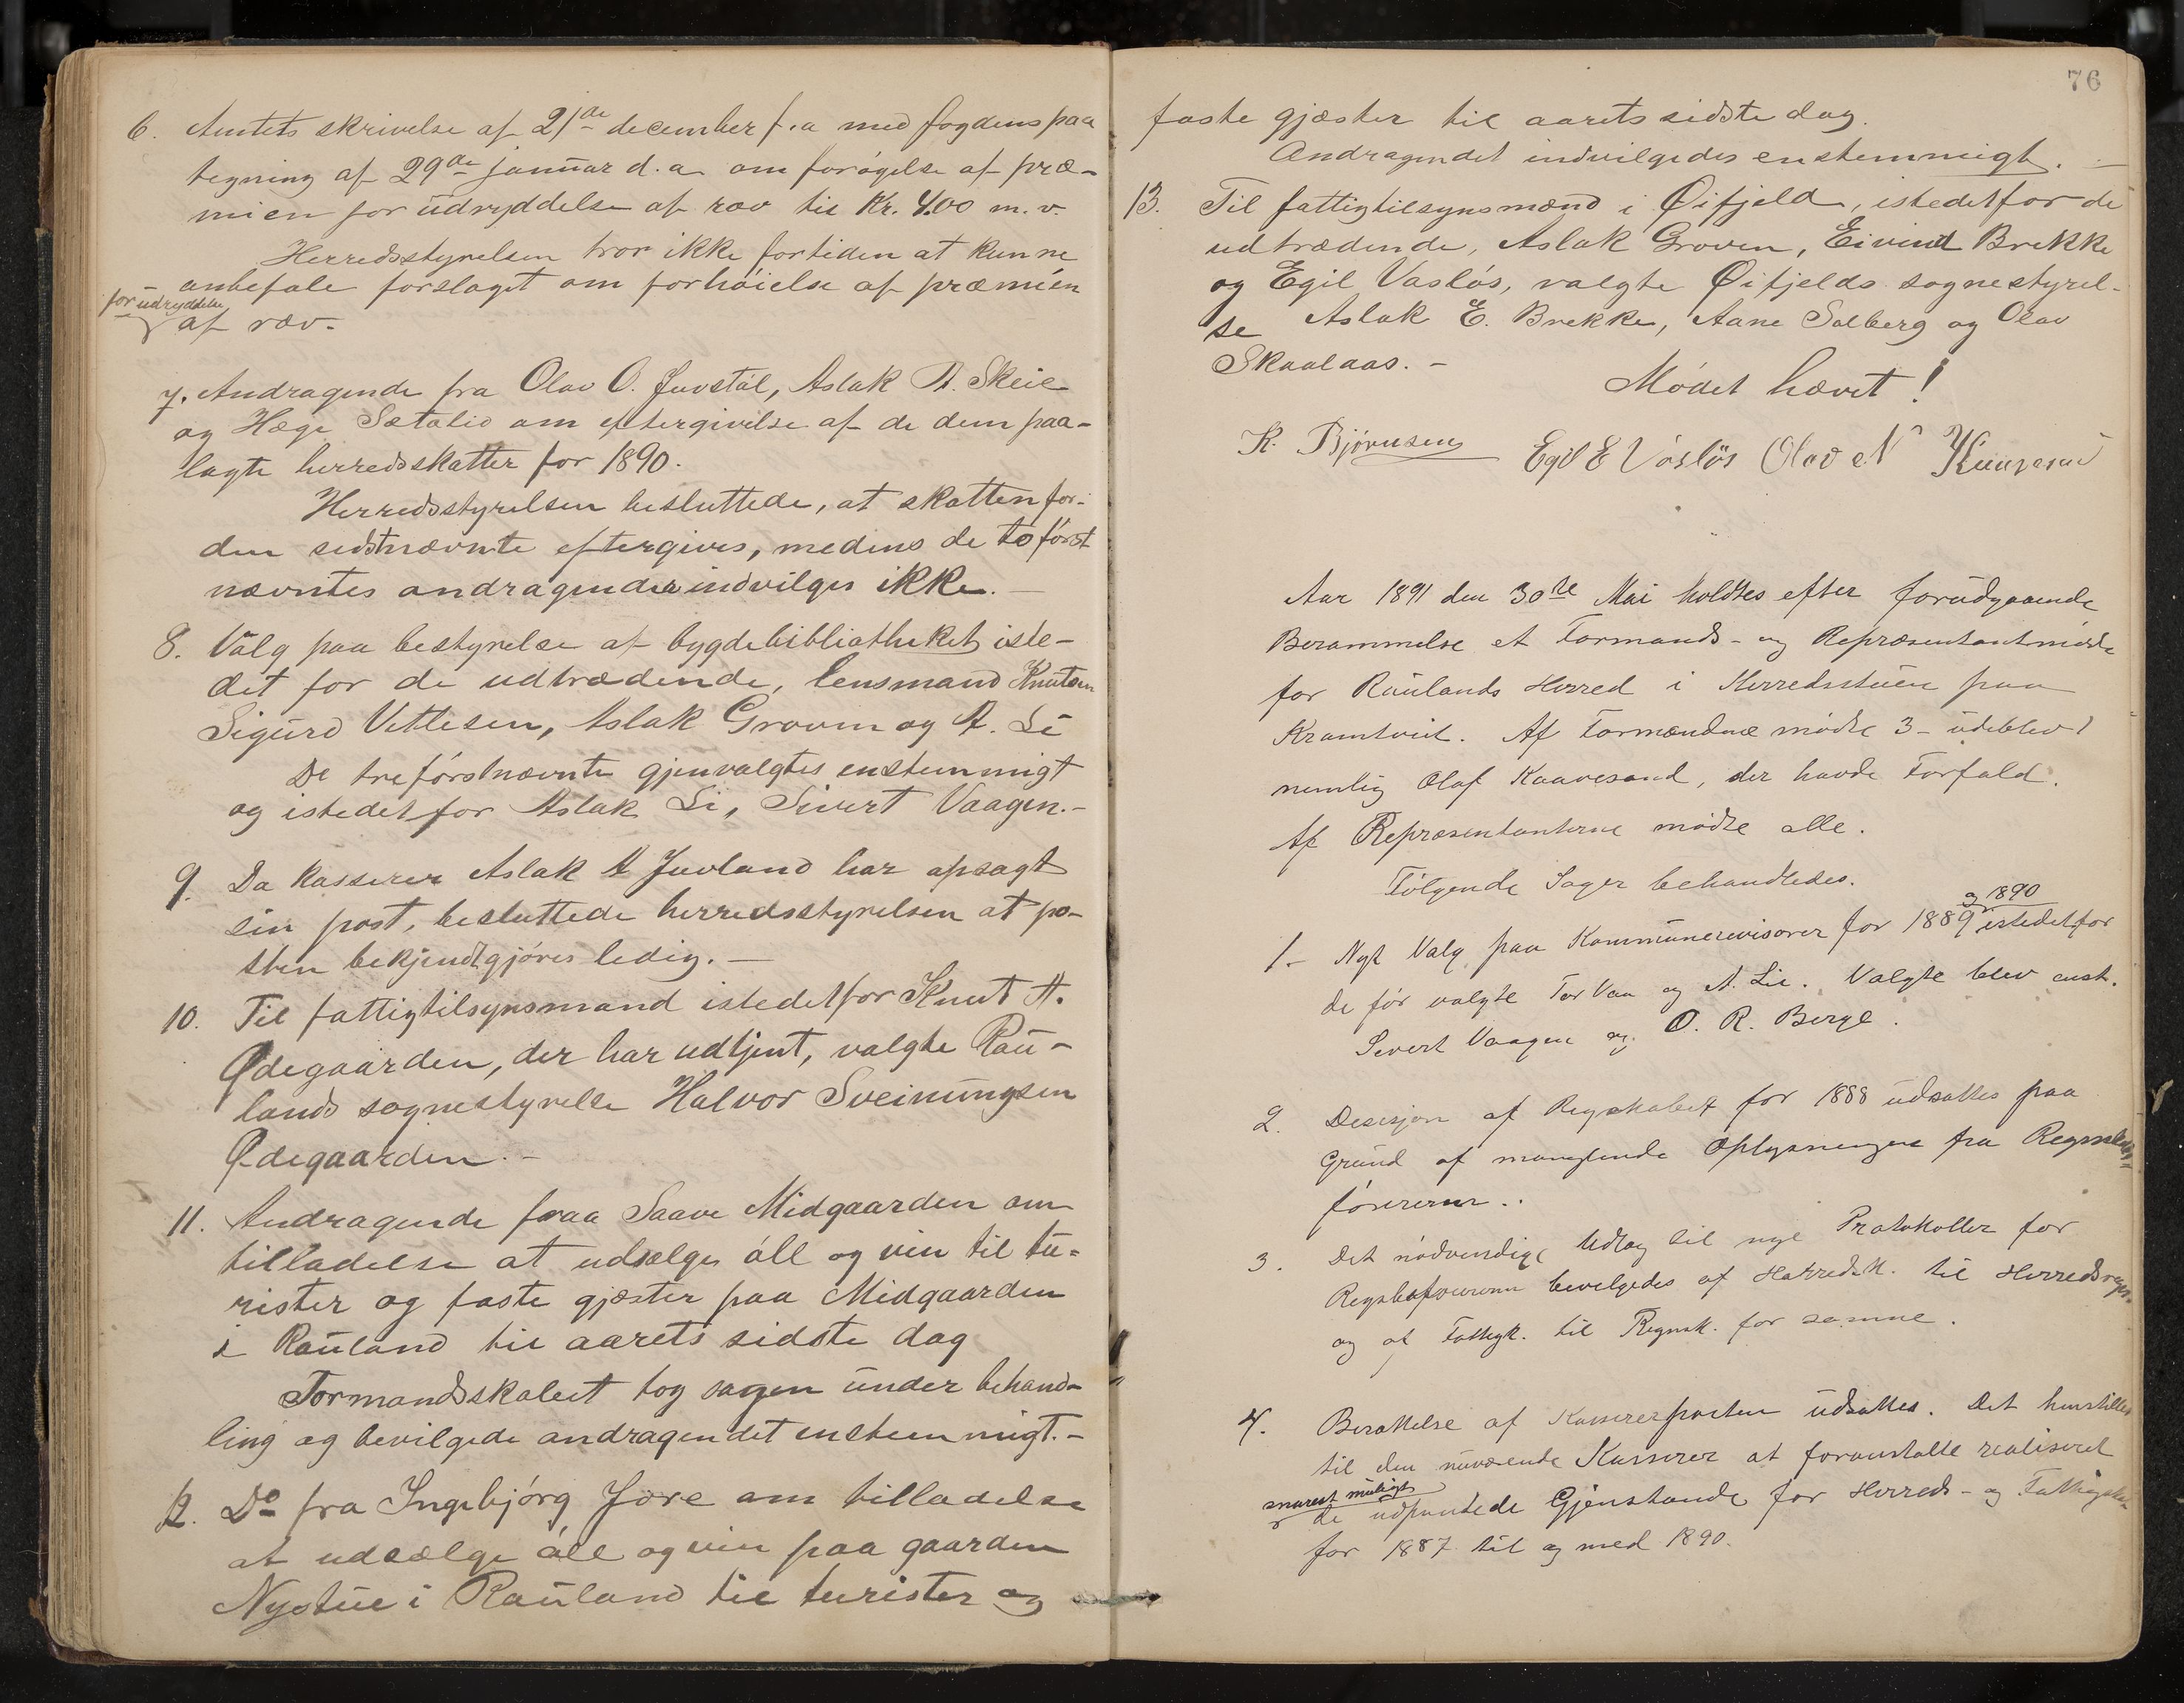 6. Amtets skrivelse af 21de december f.a med fogdens paa
tegning af 29de januar d.a om forøgelse af præ-
mien for udryddelse af ræv til Kr. 4.00 m.v.
Herredsstyrelsen tror ikke fortiden at kunne
anbefale forslaget om forhøielse af præmien
for udryddelse
af ræv.
7. Andragende fra Olav O. Juvstøl, Aslak A. Skeie
og Hæge Sætalid om eftergivelse af de dem paa-
lagte herredsskatter for 1890.
Herredsstyrelsen besluttede, at skatten for
den sidstnævnte eftergives, medens de to først
nævntes andragender indvilges ikke. -
8. Valg paa bestyrelse af bygdebibliotheket iste-
det for de udtrædende, lensmand Knutsen
Sigurd Vetlesen, Aslak Groven og A. Li
De tre førstnævnte gjenvalgtes enstemmigt
og istedetfor Aslak Li, Sivert Vaagen. -
9. Da kasserer Aslak A Juvland har opsagt
sin post, besluttede herredsstyrelsen at po-
sten bekjendtgjøres ledig. -
10. Til fattigtilsynsmand istedetfor Knut A.
Ødegaarden, der har udtjent, valgte Rau-
lands sognestyrelse Halvor Sveinungsen
Ødegaarden. -
11. Andragende fraa Saave Midgaarden om
tilladelse at udsælge øll og vin til tu-
rister og faste gjæster paa Midgaarden
i Rauland til aarets sidste dag
Formandsskabet tog sagen under behand-
ling og bevilgede andragendet enstemmigt. -
12. Do fra Ingebjørg Jore om tilladelse
at udsælge øll og vin paa gaarden
Nystue i Rauland til turister og
76
faste gjæster til aarets sidste dag.
Andragendet indvilgedes enstemmigt. -
13. Til fattigtilsynsmænd i Øifjeld, istedetfor de
udtrædende, Aslak Groven, Eivind Brekke
og Egil Vasløs, valgte Øifjelds sognestyrel-
se Aslak E. Brekke, Aane Solberg og Olav
Skaalaas. -
Mødet hævet!
K. Bjørnsen Egil E Vasløs Olav N
Aar 1891 den 30te Mai holdtes efter forudgaaende
Berammelse et Formands- og Repræsentantmøde
for Raulands Herred i Herredsstuen paa
Kramtveit. Af Formændne mødte 3 - udeblev 1
nemlig Olaf Kaavesand, der havde Forfald.
Af Repræsentanterne mødte alle.
Følgende Sager behandledes.
og 1890
1. - Nyt Valg paa Kommunerevisorer for 1889 istedetfor
de før valgte Tor Vaa og A. Lie. Valgte blev enst.
Severt Vaagen og O. R. Berge.
2. Desisjon af Regskabet for 1888 udsattes paa
Grund af manglende Oplysninger fra
førerern.
3. Det nødvendige Udlag til nye Protokoller for
bevilgedes af Herredsk. til
og af Fattigk. til Regnsk. for samme.
4. Besættelse af Kassererposten udsattes. Det henstilles
til den nuværende Kasserer at foranstalte realiseret
snarest muligt
de udpantede Gjenstande for Herreds- og
for 1887 til og med 1890.